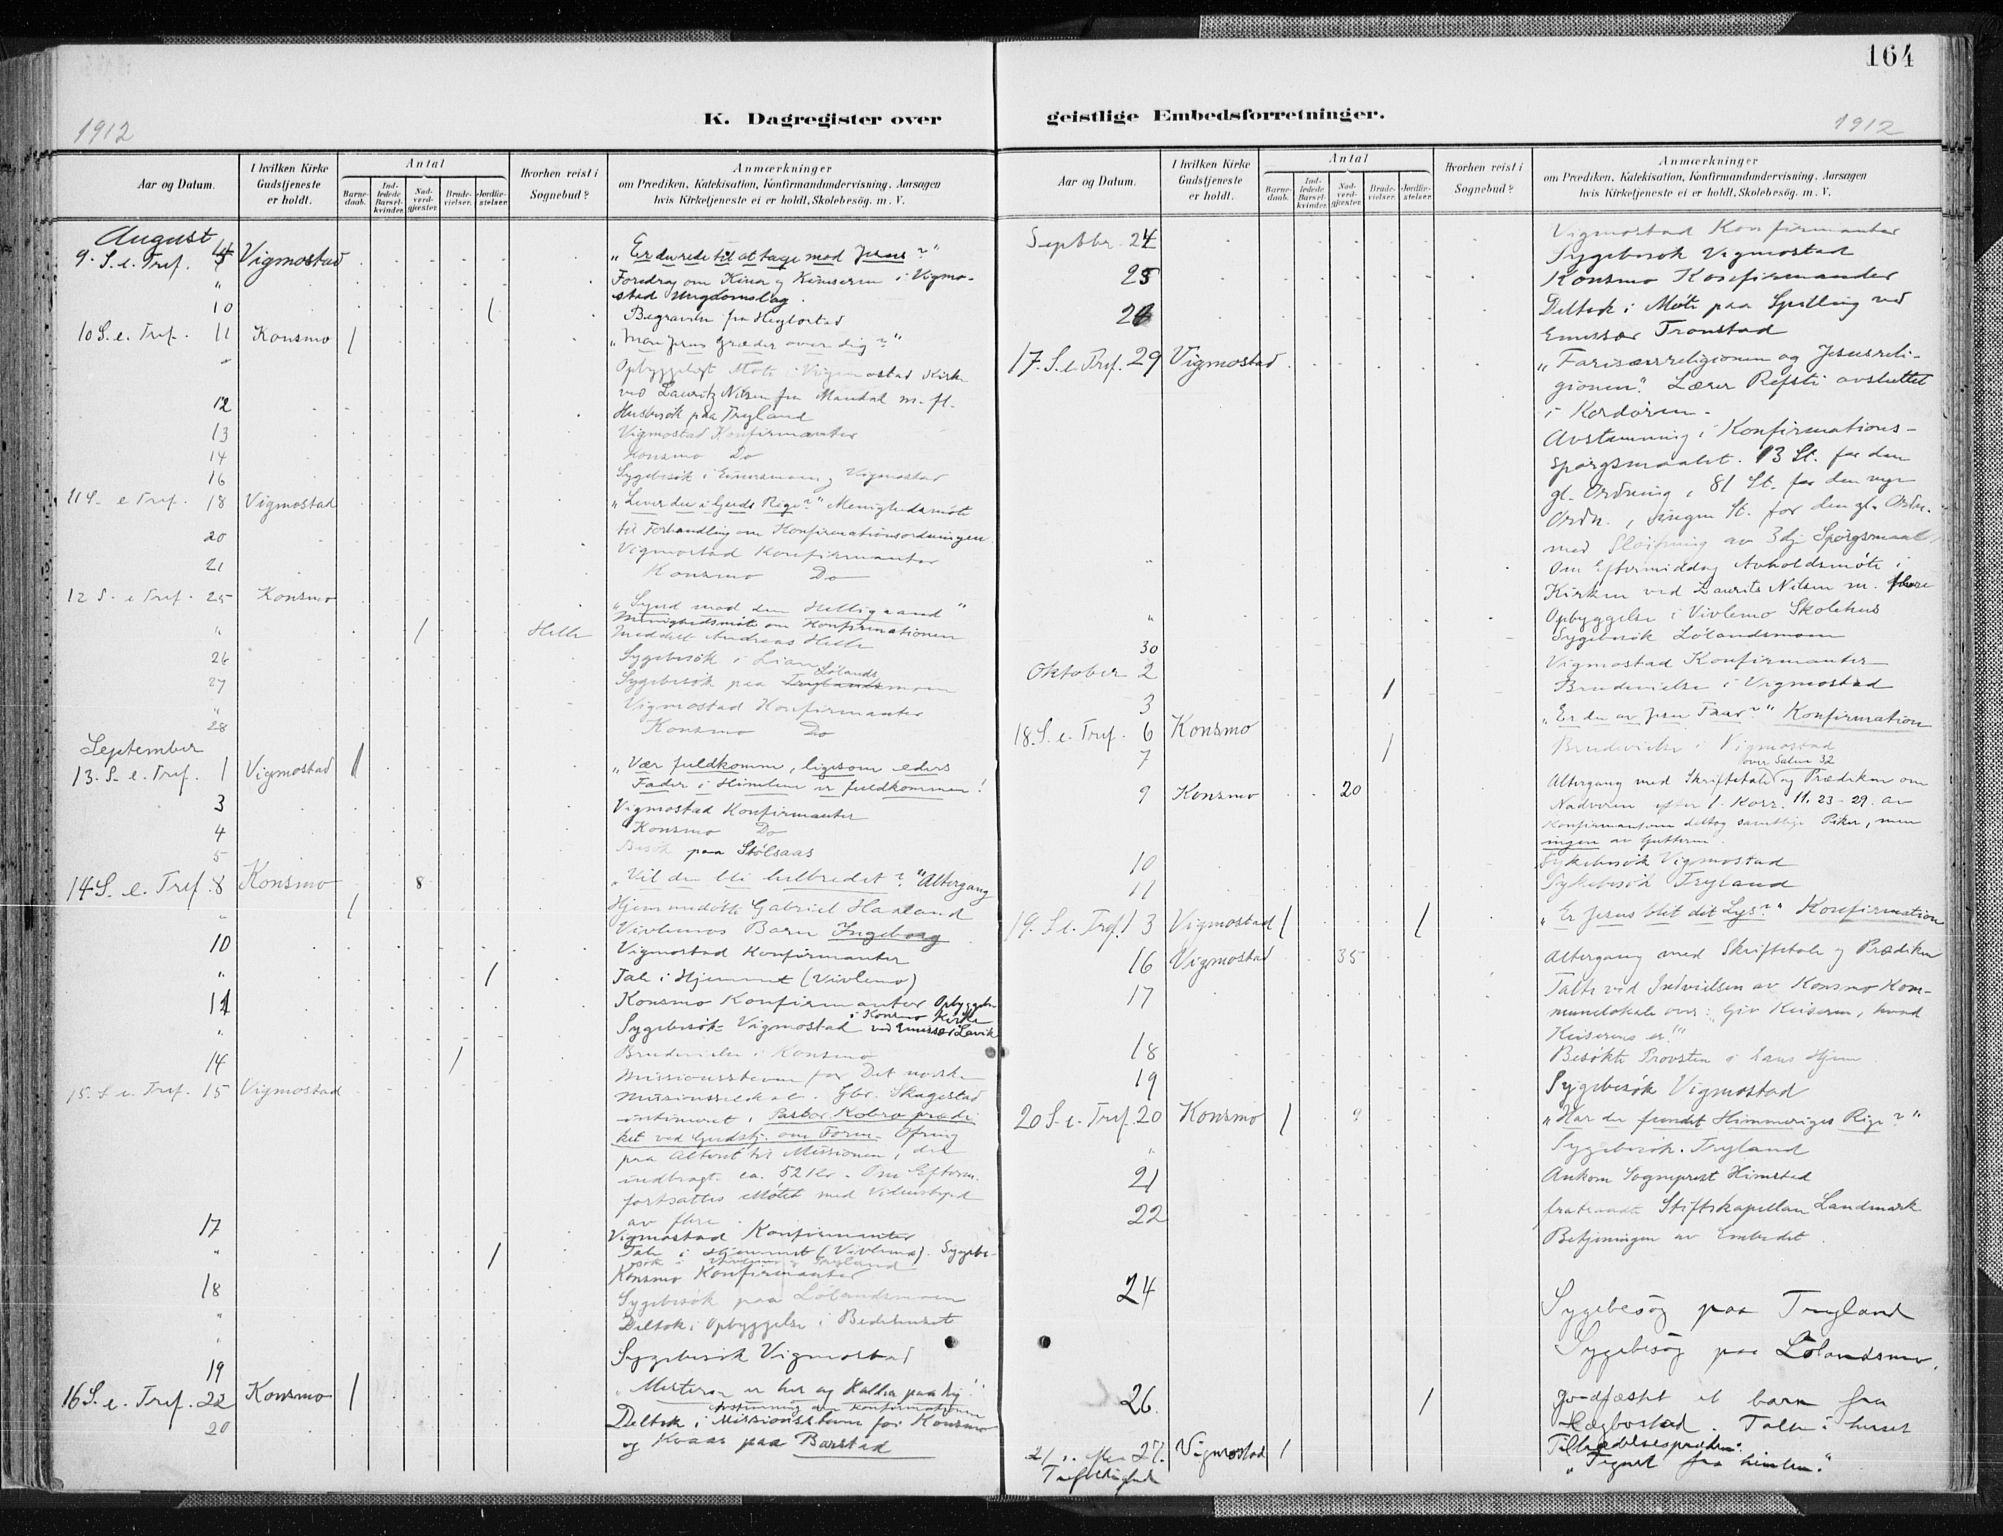 164
1912
K. Dagregister over
geistlige Embedsforretninger.
1912
Aar og Datum.
I hvilken Kirke Gudstjeneste er holdt.
Antal
Barne-daab.
Ind-ledede Barsel-kvinder.
Nad-verd-gjæster.
Brude-vielser.
Jordfæ-stelser.
Hvorhen reist i Sognebud?
Anmærkninger
om Prædiken, Katekisation, Konfirmandundervisning, Aarsagen
hvis Kirketjeneste ei er holdt, Skolebesøg. m. V.
August
9. S. e. Tref. 4 Vigmostad „Er du rede til at tage mod Jesus?"
" Foredrag om Kina og Kineserne i Vigmo-
stad Ungdomslag.
10 1 Begravelse fra Hægbostad
10 S. e. Tref. 11 Konsmo 1 „Mon Jesus græder over dig?"
" Opbyggelig Møte i Vigmostad Kirke
ved Lauritz Nilsen fra Mandal m. fl.
12 Husbesøk paa Tryland
13 Vigmostad Konfirmanter
14 Konsmo Do
16 Sygebesøk i Vigmostad
11 S. e Tref. 18 Vigmostad „Lever du i Guds Rige?" Menighedsmøte
til Forhandling om Konfirmationsordningen
20 Vigmostad Konfirmanter
21 Konsmo Do
12 S. e Tref. 25 Konsmo „Synd mod den Helligaand"
Menighedsmøte om Konfirmationen
" 1 Helle Meddelt Andreas Helle
26 Sygebesøk i Lian
27 Sygebesøk paa Lølandsmoen
" Vigmostad Konfirmanter
28 Konsmo Do
September
13. S. e. Tref. 1 Vigmostad 1 „Vær fuldkomne, ligesom eders
Fader i Himlen er fuldkommen!
3 Vigmostad Konfirmanter
4 Konsmo Do
5 Besøk paa Stølsaas
14 S. e. Tref. 8 Konsmo 8 „Vil du bli helbredet?" Altergang
" 1 Hjemmedøbt Gabriel Haaland
Vivlemos Barn Ingeborg
10 Vigmostad Konfirmanter
" 1 Tale i Hjemmet (Vivlemo)
11 Konsmo Konfirmanter Opbyggelse
i Konsmo Kirke
" Sygebesøk Vigmostad ved Emissær Lavik
14 1 Brudevielse i Konsmo
15. S e. Tref. 15 Vigmostad Missionsstevne for Det norske
Missionsselskab. Gbr. Skagestad
intimeret, Pastor Kobro prædi
ket ved Gudstj. om Form. Ofring
paa Alteret til Missionen, der
indbragt. ca. 52 Kr. Om Efterm.
fortsattes Møtet med Vidnesbyrd
av flere.
17 Vigmostad Konfirmanter
" 1 Tale i Hjemmet (Vivlemo). Sygebe-
søk i Tryland
18 Konsmo Konfirmanter
" Sygebesøk paa Lølandsmoen
" Deltok i Opbyggelse i Bedehuset
19 Sygebesøk Vigmostad
16 S. e. Tref. 22 Konsmo 1 „Mesteren er her og kalder paa dig!"
Avstemning om Konfirmationen
20 Deltok i Missionsstevne for Konsmo
og Kvaas paa Barstad
Aar og Datum.
I hvilken Kirke Gudstjeneste er holdt.
Antal
Barne-daab.
Ind-ledede Barsel-kvinder.
Nad-verd-gjæster.
Brude-vielser.
Jordfæ-stelser.
Hvorhen reist i Sognebud?
Anmærkninger
om Prædiken, Katekisation, Konfirmandundervisning, Aarsagen
hvis Kirketjeneste ei er holdt, Skolebesøg. m. V.
Septbr. 24 Vigmostad Konfirmanter
Sygebesøk Vigmostad
25 Konsmo Konfirmander
26 Deltok i Møte paa Spilling ved
Emissær Tronstad
17. S. e Tref. 29 Vigmostad „Farisæerreligionen og Jesusreli-
gionen". Lærer Refsti avsluttet
i Kordøren.
Avstemning i Konfirmations-
spørgsmaalet. 13 St. for den
gl. Ordning, 81 St. for den nye
Ordn., ingen St. for den gl. Ordn.
med Sløifning av 3dj Spørgsmaal
" Om Eftermiddag Avholdsmøte i
Kirken ved Laurits Nilsen m. flere
" Opbyggelse i Vivlemo Skolehus
30 Sygebesøk Lølandsmoen
Oktober 2 Vigmostad Konfirmanter
3 1 Brudevielse i Vigmostad
18. S. e. Tref. 6 Konsmo „Er du av Jesu Faar?" Konfirmation
7 1 Brudevielse i Vigmostad
over Salme 32
9 Konsmo 20 Altergang med Skriftetale og Prædiken om
Nadveren efter 1. Korr. 11, 23-29. av
Konfirmanterne deltog samtlige Piker, men
ingen av Gutterne.
10 Sykebesøk Vigmostad
11 Sykebesøk Tryland
19. S. e. Tref. 13 Vigmostad 1 1 „Er Jesus blit dit Lys?" Konfirmation
16 Vigmostad 35 Altergang med Skriftetale og Prædiken
17 Talte ved Indvielsen av Konsmo Kom-
munelokale over: Giv Keiseren, hvad
Keiserens er!"
18 Besøkte Provsten i hans Hjem
19 Sygebesøk Vigmostad
20 S. e. Tref. 20 Konsmo 1 9 „Har du fundet Himmeriges Rige?"
" Sygebesøk Tryland
21 Ankom Sogneprest Himstad
22 fratraadte Stiftskapellan Landmark
Betjeningen av Embedet.
24 Sygebesøg paa Tryland
Sygebesøg paa Lølandsmo.
26. 1 Jordfæstet et barn fra
Hægbostad. Talte i huset
21 s. efter 27. Vigmostad 1 Tiltrædelsesprædiken:
Trefoldighed „Tegnet fra himlen."